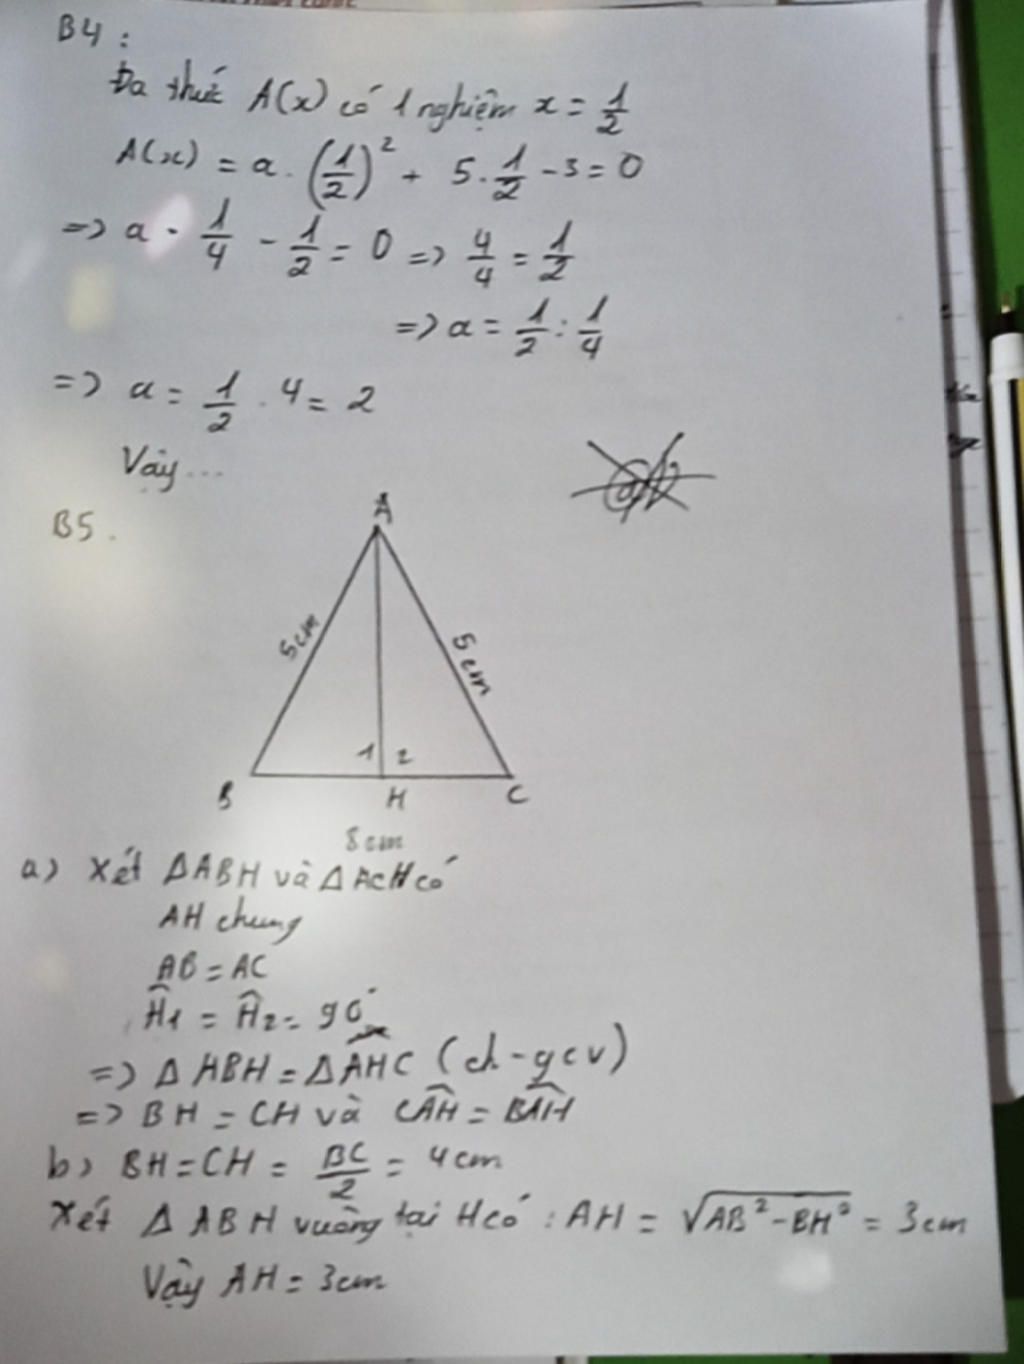 B4 :
Đa thức A(x) có 1 nghiệm x = 1/2
A(x) = a . (1/2)² + 5 . 1/2 - 3 = 0
=> a . 1/4 - 1/2 = 0 => 4/4 = 1/2
=> a = 1/2 : 1/4
=> a = 1/2 . 4 = 2
Vậy ...
B5 .
A
5cm 5cm
1 2
B H C
8cm
a) Xét ΔABH và ΔACH có
AH chung
AB = AC
Ĥ1 = Ĥ2 = 90°
=> Δ HBH = ΔAHC (ch - gcv)
=> BH = CH và CÂH = BÂH
b) BH = CH = BC/2 = 4cm
Xét Δ ABH vuông tại H có : AH = √(AB² - BH²) = 3cm
Vậy AH = 3cm